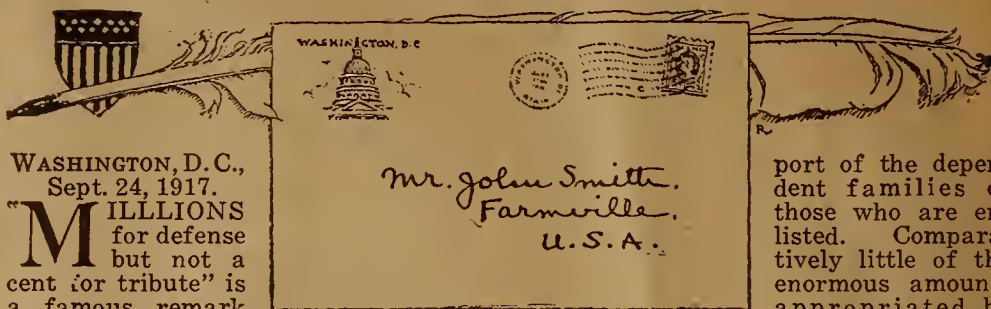 WASHINGTON, D.C
Mr. John Smith.
Farmville.
U.S.A.
WASHINGTON, D. C.,
Sept. 24, 1917.
"MILLLIONS
for defense
but not a
cent for tribute" is
a famous remark
port of the depen
dent families o
those who are en
listed. Compara
tively little of th
enormous amoun
appropriated b